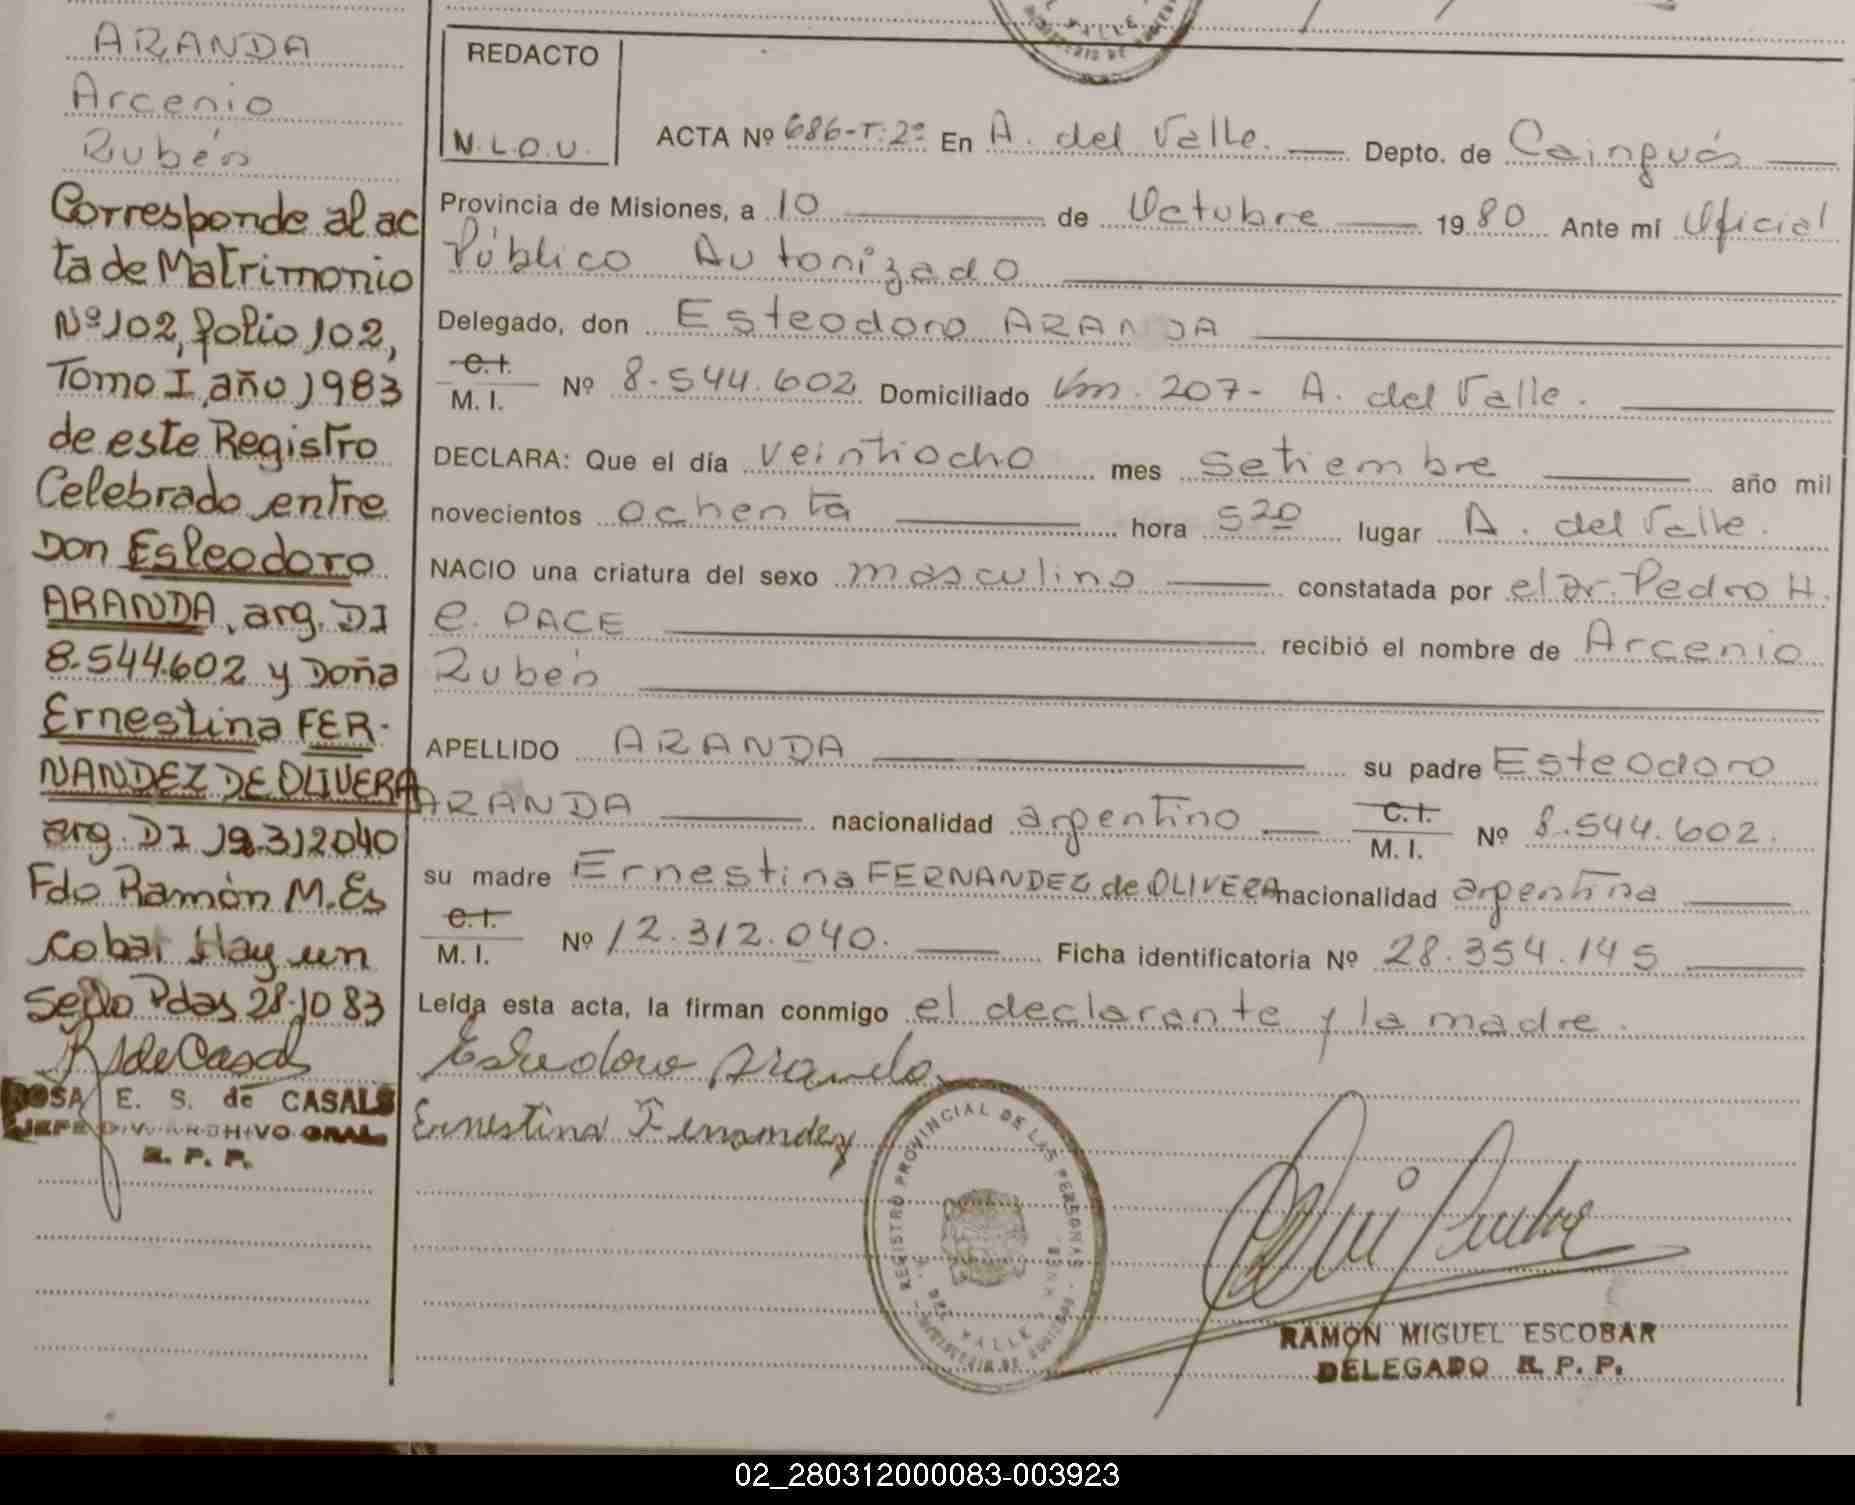 ARANDA
Arcenio
Rubén
Corresponde al ac
ta de Matrimonio
Nº 102, folio 102,
Tomo I, año 1983
de este Registro
Celebrado entre
Don Esteodoro
ARANDA, arg. DI
8.544.602 y Doña
Ernestina FER-
NANDEZ DE OLIVERA
arg. DI 12.312040
Fdo Ramón M. Es
cobar Hay un
sello Pdas 28-10 83
ROSA E. S. de CASALS
JEFE DIV. ARCHIVO GRAL.
R. P. P.
REDACTO
N.L.O.U.
ACTA Nº 686-T:2º En A. del Valle. Depto. de Cainguás
Provincia de Misiones, a 10 de Octubre 1980 Ante mí Oficial
Público Autorizado
Delegado, don Esteodoro ARANDA
C.I.
M. I. Nº 8.544.602 Domiciliado Km. 207- A. del Valle.
DECLARA: Que el día veintiocho mes setiembre año mil
novecientos ochenta hora 520 lugar A. del Valle.
NACIO una criatura del sexo masculino constatada por el Dr. Pedro H.
e. PACE recibió el nombre de Arcenio
Rubén
APELLIDO ARANDA su padre Esteodoro
ARANDA nacionalidad argentino C.I.
M. I. Nº 8.544.602.
su madre Ernestina FERNANDEZ de OLIVERA nacionalidad argentina
C.I.
M. I. Nº 12.312.040. Ficha identificatoria Nº 28.354.145
Leída esta acta, la firman conmigo el declarante y la madre.
Esteodoro Aranda
Ernestina Fernandez
REGISTRO PROVINCIAL DE LAS PERSONAS
A. DEL VALLE
MINISTERIO DE GOBIERNO
RAMON MIGUEL ESCOBAR
DELEGADO R. P. P.
02_280312000083-003923